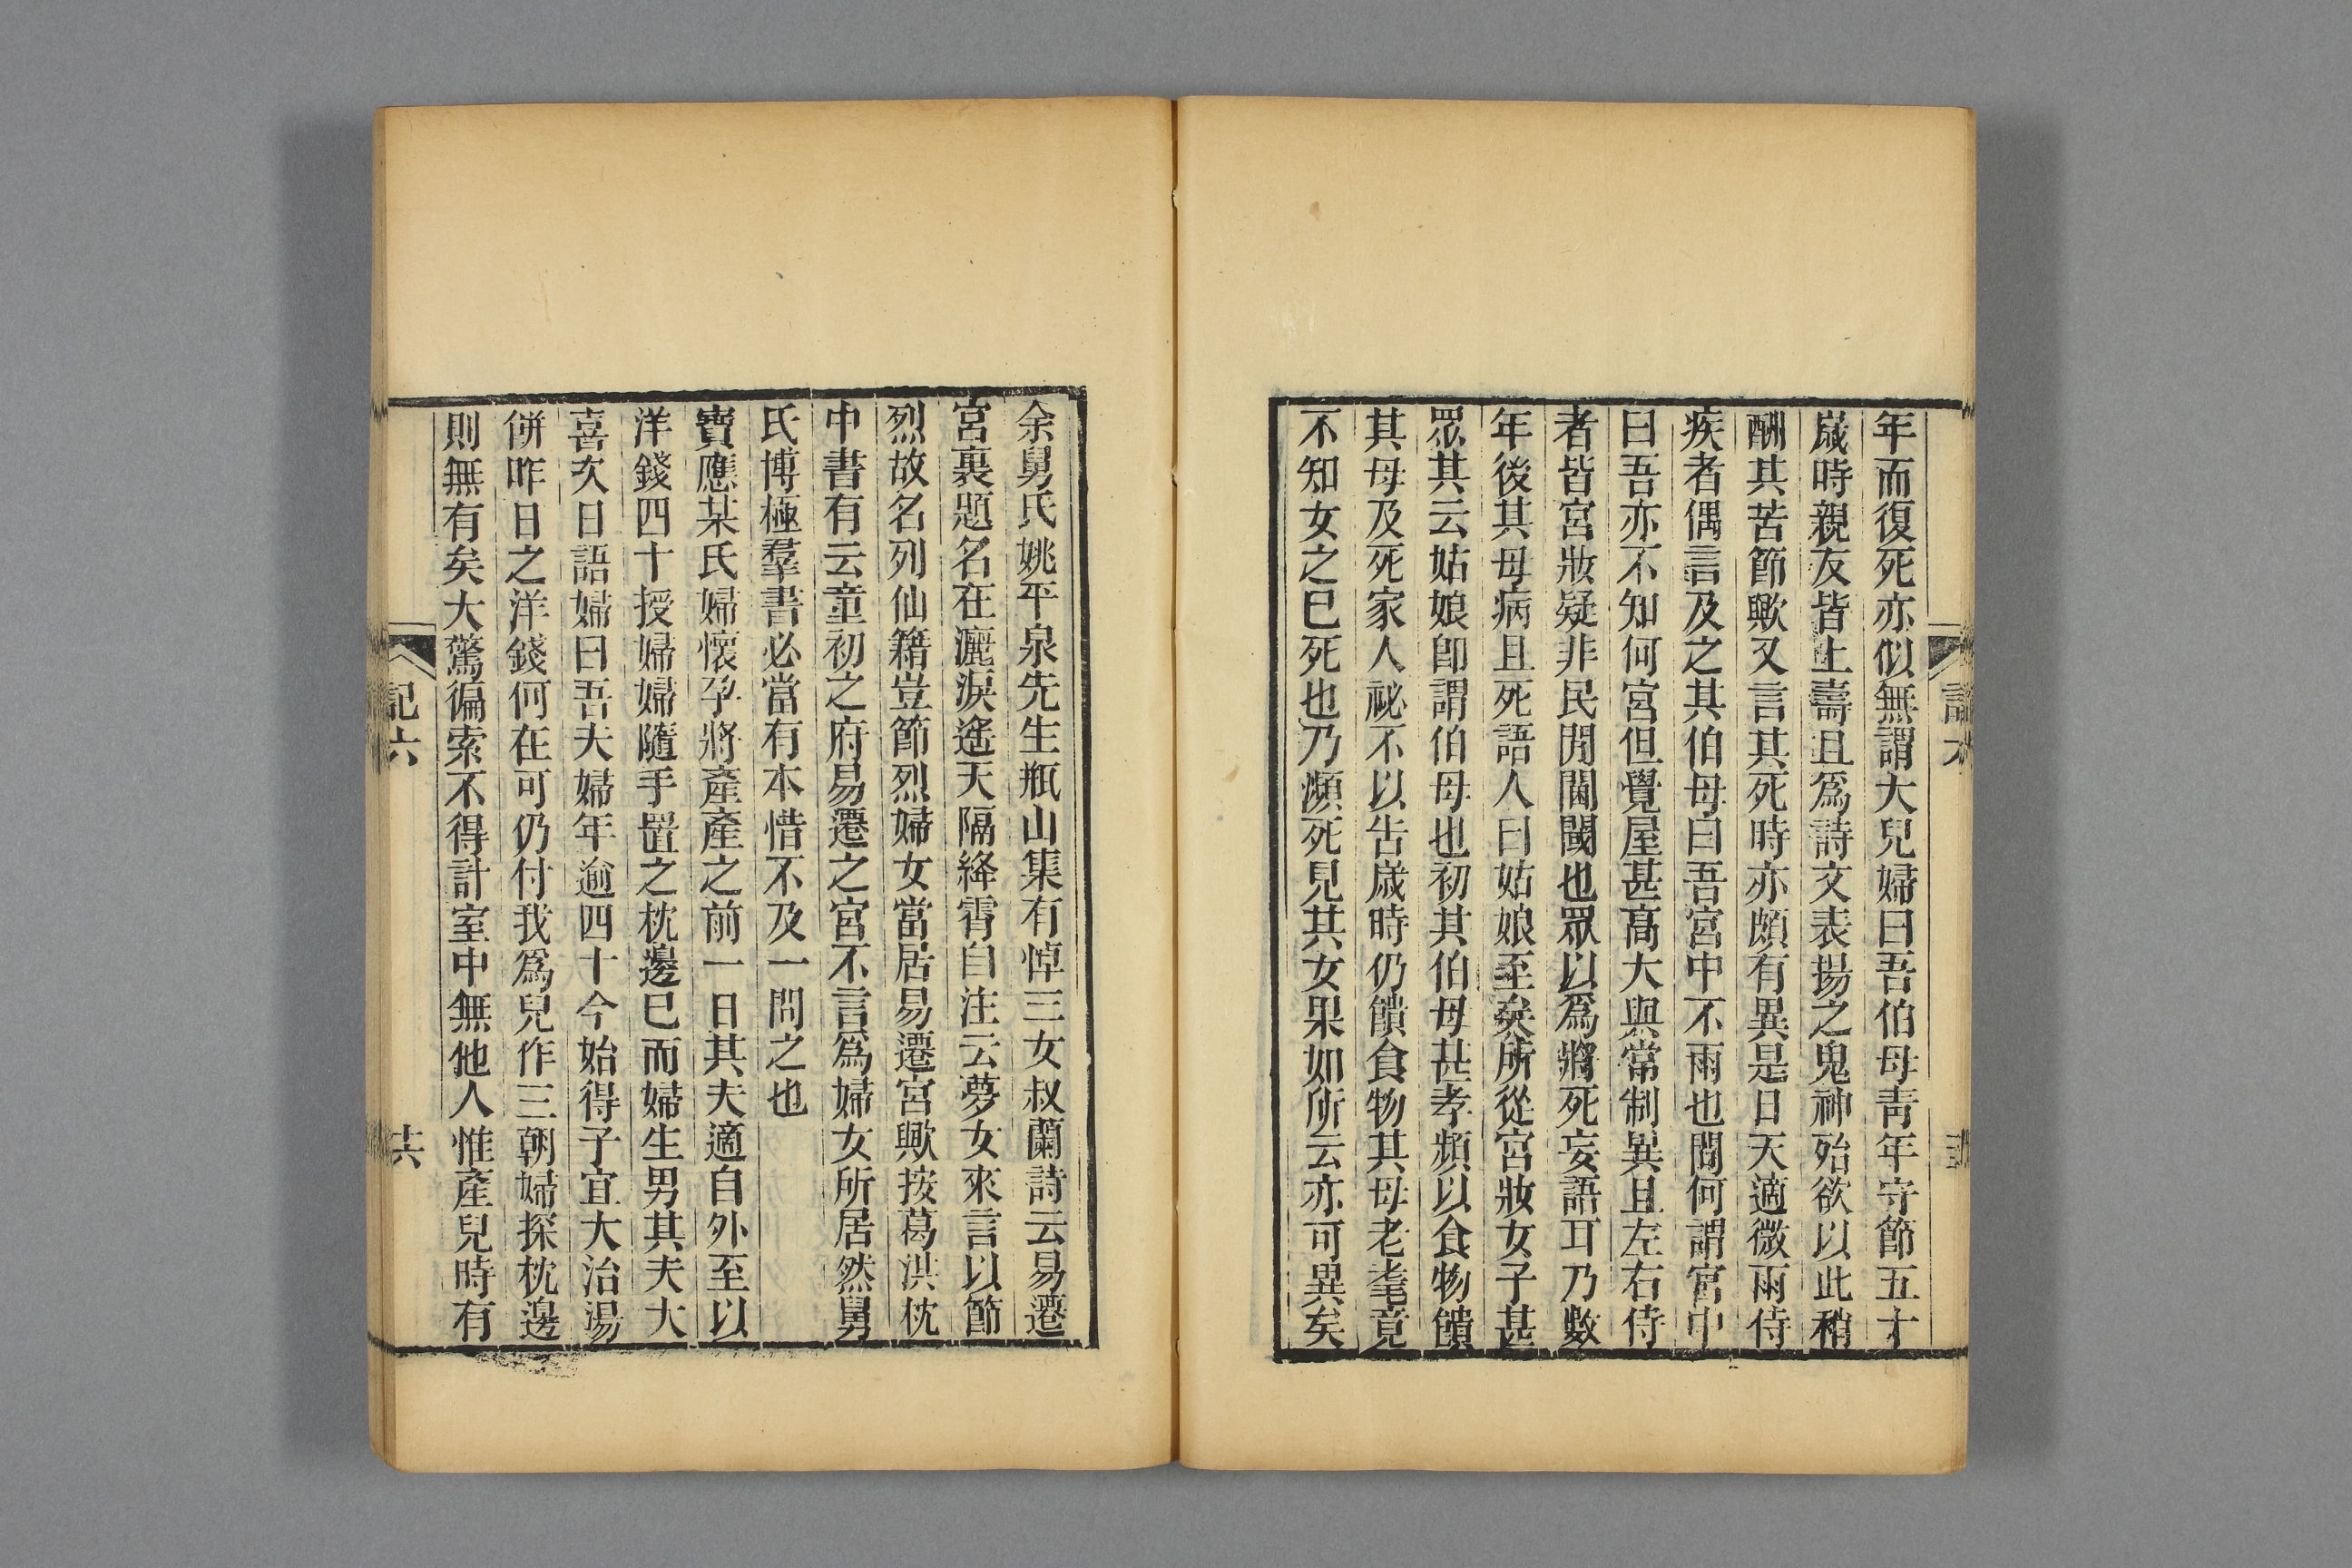 年而復死亦似無謂大兒婦曰吾伯母青年守節五十
歲時親友皆上壽且爲詩文表揚之鬼神殆欲以此稍
酬其苦節歟又言其死時亦頗有異是日天適微雨侍
疾者偶言及之其伯母曰吾宮中不雨也問何謂宮中
曰吾亦不知何宮但覺屋甚高大與常制異且左右侍
者皆宮妝疑非民閒閫閾也眾以爲將死妄語耳乃數
年後其母病且死語人曰姑娘至矣所從宮妝女子甚
眾其云姑娘卽謂伯母也初其伯母甚孝頻以食物饋
其母及死家人祕不以告歲時仍饋食物其母老耄竟
不知女之已死也乃瀕死見其女果如所云亦可異矣
余舅氏姚平泉先生瓶山集有悼三女叔蘭詩云易遷
宮裏題名在灑淚遙天隔絳霄自注云夢女來言以節
烈故名列仙籍豈節烈婦女當居易遷宮歟按葛洪枕
中書有云童初之府易遷之宮不言爲婦女所居然舅
氏博極羣書必當有本惜不及一問之也
寶應某氏婦懷孕將產產之前一日其夫適自外至以
洋錢四十授婦婦隨手置之枕邊已而婦生男其夫大
喜次日語婦曰吾夫婦年逾四十今始得子宜大治湯
餅昨日之洋錢何在可仍付我爲兒作三朝婦探枕邊
則無有矣大驚徧索不得計室中無他人惟產兒時有
記六
十六